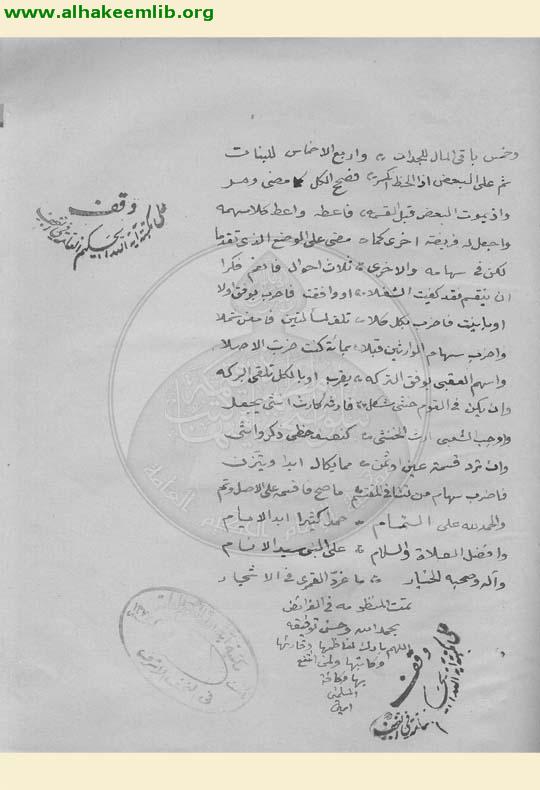 www.alhakeemlib.org
وخمس باقي المال للجدات واربع الاخماس للبنات
ثم على البعض اذا الحظ انكسر فصحح الكل كما مضى ومر
واذ يموت البعض قبل القسمه فاعطه واعط كلا سهمه
واجعل له فريضة اخرى كما مضى على الموضع الذي تقدما
لكن في سهامه والاخرى ثلاث احوال فانعم فكرا
ان ينقسم فقد كفيت الشغلا او وافقت فاضرب بوفق اولا
او باينت فاضرب بكل كلا تلف لمسألتين
واضرب سهام الوارثين قبلا بمائة كنت ضربت الاصلا
واسهم العقبى بوفق التركه يضرب او بالكل تلقى البركه
وان يكن في القوم خنثى مشكل
واوجب الشعبي ارث الخنثى كنصف حظي ذكر وانثى
وان ترد قسمة عين او ثمن مما يكال ابدا ويتزن
فاضرب سهام من تشا في المقتسم ما صح فاقسمه على الاصل وتم
والحمد لله على التمام حمدا كثيرا ابد الايام
وافضل الصلاة والسلام على النبي سيد الانام
وآله وصحبه الخيار ما غرد القمري في الاشجار
تمت المنظومه في الفرائض
بحمد الله وحسن توفيقه
اللهم بارك لناظمها وقارئها
وكاتبها ولمن انتفع
بها وكافة
المسلمين
امين
وقف
وقف